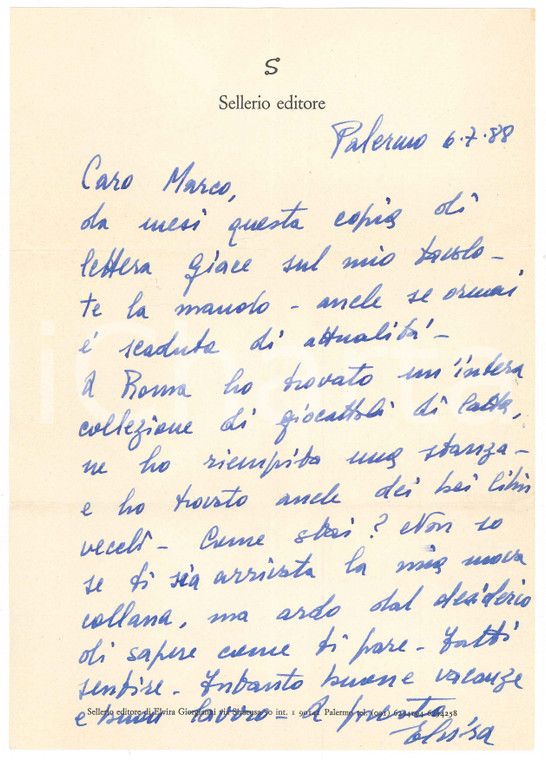 S
Sellerio editore
Palermo 6.7.88
Caro Marco,
da mesi questa copia di
lettera giace sul mio tavolo -
te la mando - anche se ormai
è scaduta di attualità -
A Roma ho trovato un'intera
collezione di giocattoli di latta,
ne ho riempita una stanza -
e ho trovato anche dei bei libri
vecchi - Come stai? Non so
se ti sia arrivata la mia nuova
collana, ma ardo dal desiderio
di sapere come ti pare. Fatti
sentire - Intanto buone vacanze
Sellerio editore di Elvira Giorgianni via Siracusa 50 int. 1 90141 Palermo tel. (091)
e buon lavoro - A presto
Elvira